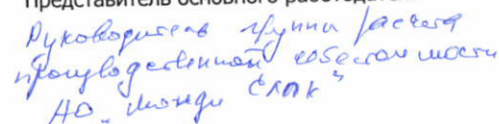 Представитель основного работодателя
Руководитель группы расчета
производственной себестоимости
АО "Монди СЛПК"